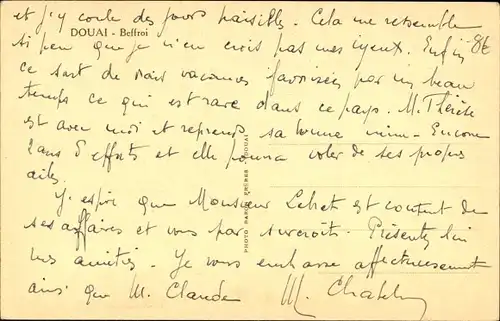 et j'y coule des jours paisibles. Cela me ressemble
DOUAI - Beffroi
si peu que je n'en crois pas mes yeux. Enfin
8€
ce sont de vraies vacances favorisées par un beau
temps ce qui est rare dans ce pays. M. Thérèse
est avec moi et reprend sa bonne mine - Encore
d'efforts et elle pourra voler de ses propres
ailes.
J'espère que Monsieur est content de
ses affaires et vous par surcroît. Présentez lui
mes amitiés. Je vous embrasse affectueusement
ainsi que M. Claude M.
PHOTO FRÈRES - DOUAI